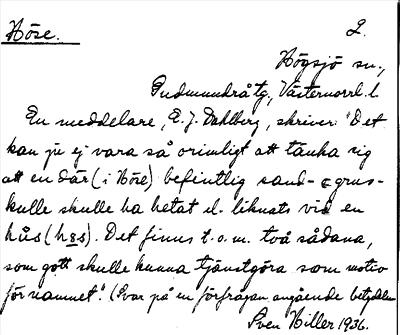 Höse. 2.
Högsjö sn.,
Gudmundrå tg., Västernorrl. l.
En meddelare, E. J. Dahlberg, skriver: "Det
kan ju ej vara så orimligt att tänka sig
att en där (i Höse) befintlig sand- o grus-
kulle skulle ha hetat el. liknats vid en
hùs (hɘs). Det finns t. o. m. två sådana,
som gott skulle kunna tjänstgöra som motiv
för namnet." (Svar på en förfrågan angående betydelsen
Sven Hiller 1936.